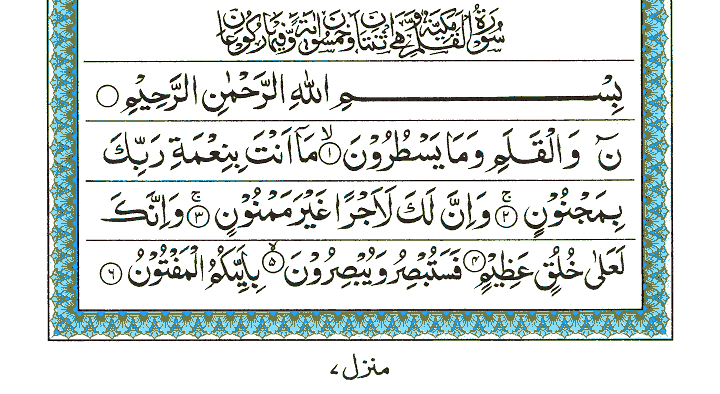 سُوْرَةُ الْقَلَمِ مَكِّيَّةٌ وَّهِيَ اثْنَتَانِ وَخَمْسُوْنَ اٰيَةً وَّفِيْهَا رُكُوْعَانِ
بِسْمِ اللهِ الرَّحْمٰنِ الرَّحِيْمِ ○
نٓ وَالْقَلَمِ وَمَا يَسْطُرُوْنَ ۙ۝۱ مَاۤ اَنْتَ بِنِعْمَةِ رَبِّكَ
بِمَجْنُوْنٍ ۚ۝۲ وَاِنَّ لَكَ لَاَجْرًا غَيْرَ مَمْنُوْنٍ ۚ۝۳ وَاِنَّكَ
لَعَلٰى خُلُقٍ عَظِيْمٍ ۝۴ فَسَتُبْصِرُ وَيُبْصِرُوْنَ ۙ۝۵ بِاَيِّىكُمُ الْمَفْتُوْنُ ۝۶
منزل ۷